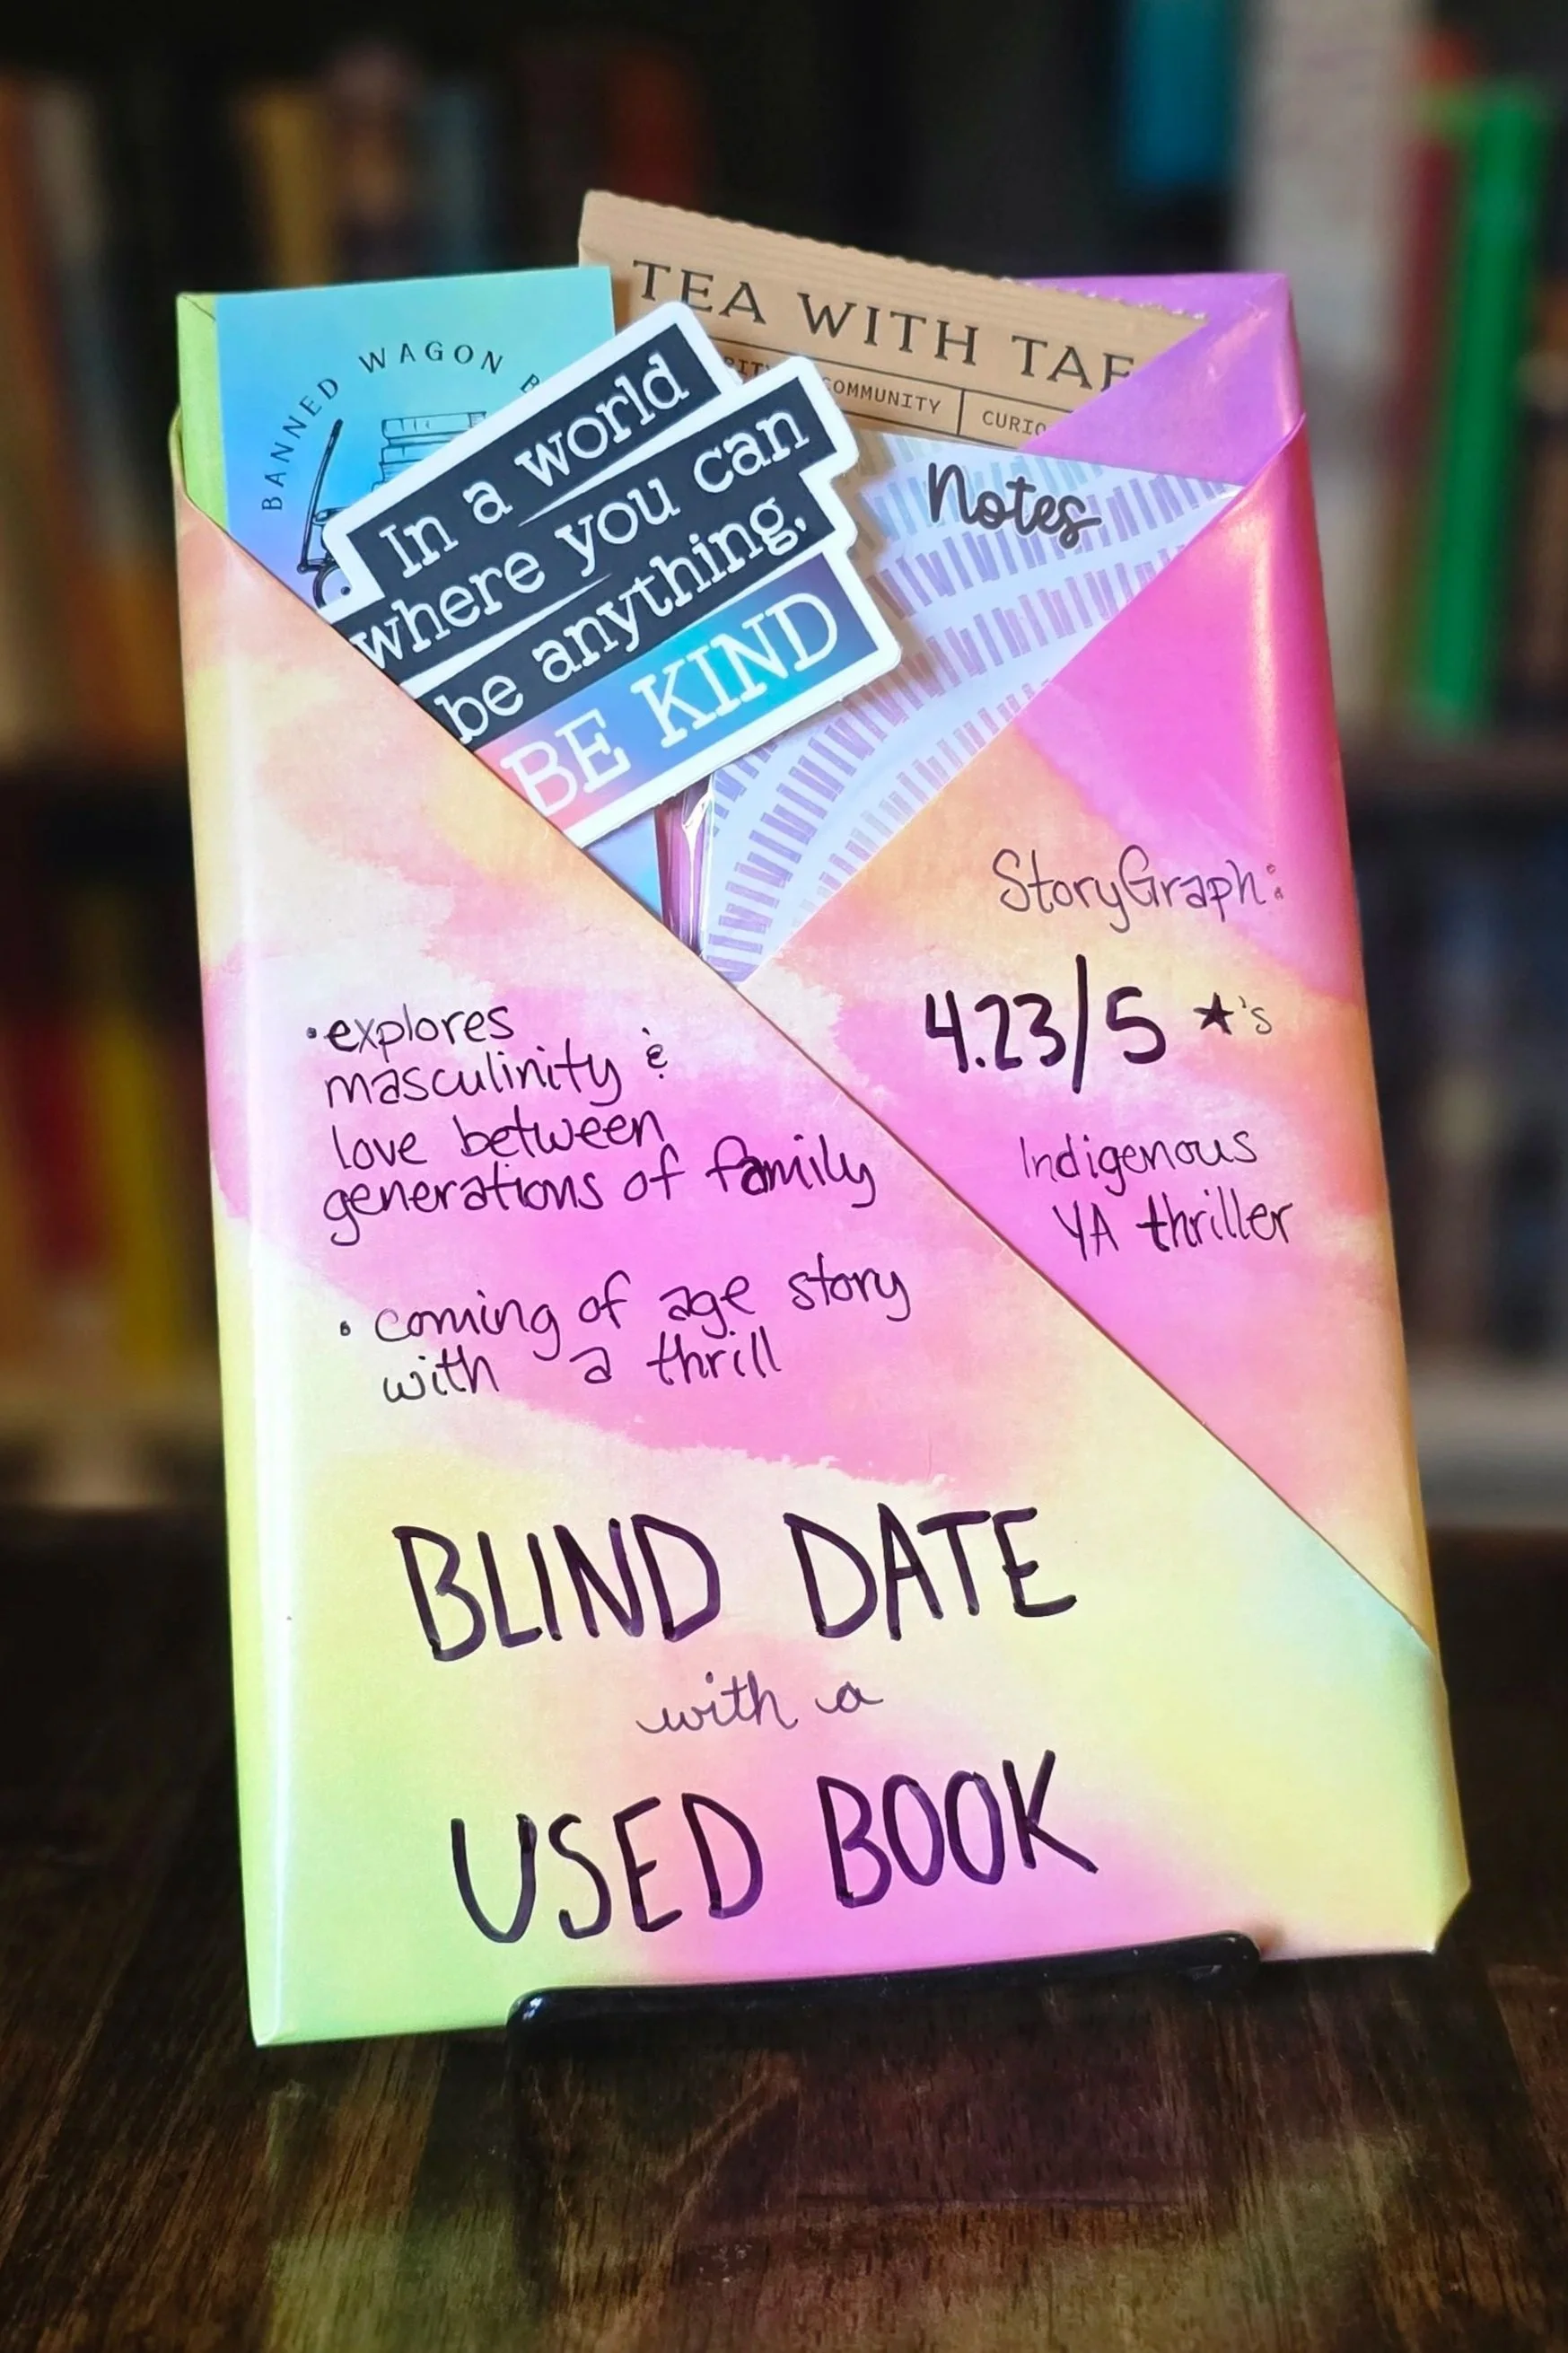 BANNED WAGON
TEA WITH TAE
COMMUNITY
In a world
where you can
be anything,
BE KIND
Notes
StoryGraph:
4.23/5 ★'s
Indigenous
YA thriller
• explores
masculinity &
love between
generations of family
• coming of age story
with a thrill
BLIND DATE
with a
USED BOOK